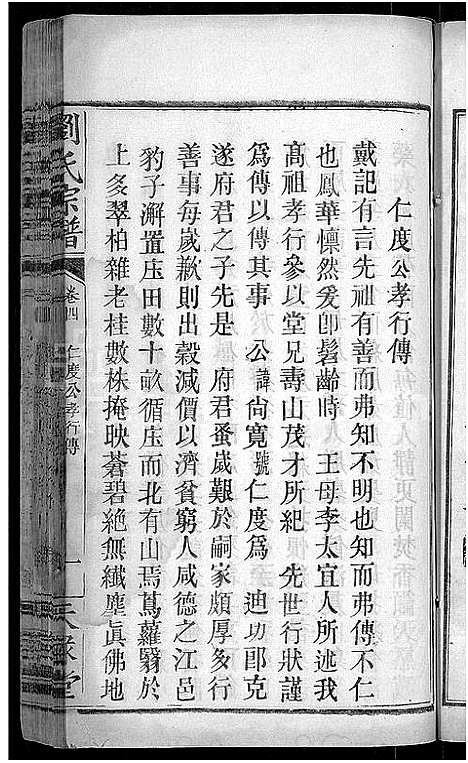 仁度公孝行傳
戴記有言先祖有善而弗知不明也知而弗傳不仁
也鳳華懔然爰卽髫齡時 王母李太宜人所述我
高祖孝行參以堂兄壽山茂才所紀 先世行狀謹
爲傳以傳其事 公諱尙寛號仁度爲 迪功郎克
遂府君之子先是 府君蚤歲艱於嗣家頗厚多行
善事每歲歉則出穀減價以濟貧窮人咸德之江邑
豹子澥置庄田數十畝循庄而北有山焉蔦蘿翳於
上多翠柏雜老桂數株掩映蒼碧絶無纖塵眞佛地
劉氏宗譜
卷四 仁度公孝行傳